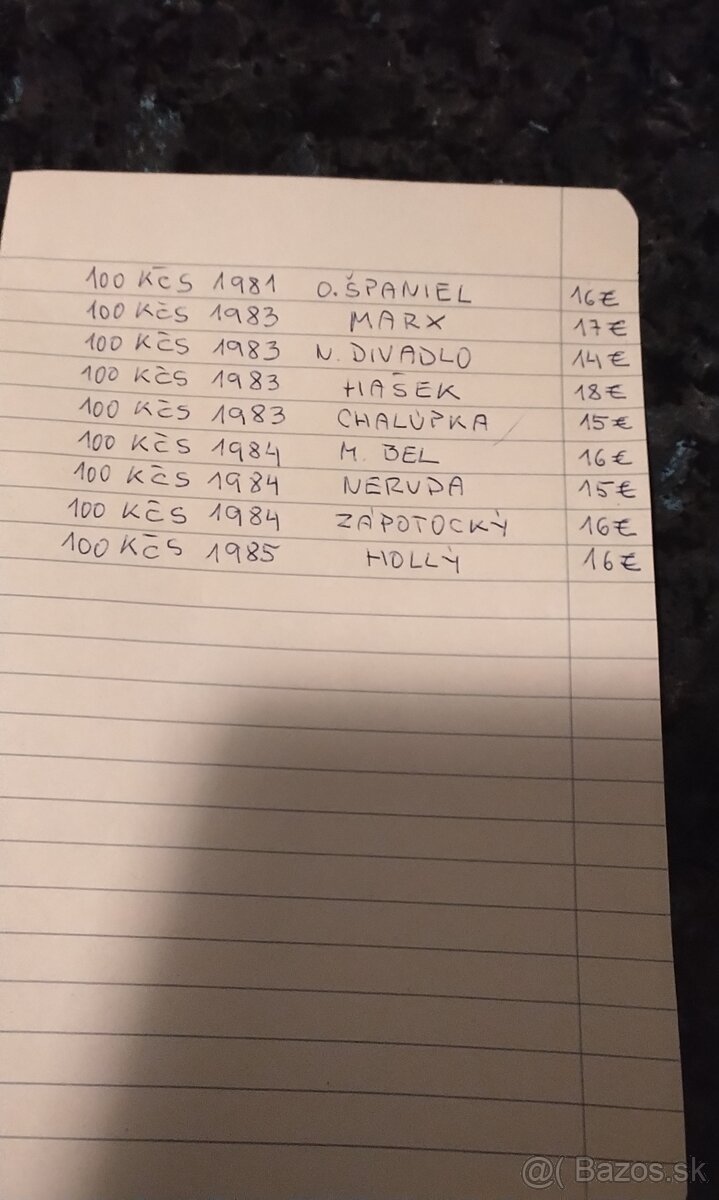 100 Kčs 1981 O. ŠPANIEL 16€
100 Kčs 1983 MARX 17€
100 Kčs 1983 N. DIVADLO 14€
100 Kčs 1983 HAŠEK 18€
100 Kčs 1983 CHALÚPKA 15€
100 Kčs 1984 M. BEL 16€
100 Kčs 1984 NERUDA 15€
100 Kčs 1984 ZÁPOTOCKÝ 16€
100 Kčs 1985 HOLLÝ 16€
@( Bazos.sk